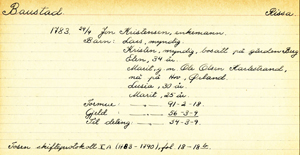 Baustad Rissa.
1783. 29/4 Jon Kristensen, enkemann.
Barn: Lars, myndig
Kristen, myndig, bosatt på gården Berg
Elen, 34 år
Marit, g m Ole Olsen Karlestrand,
nå på Hov, Ørland.
Lusia, 30 år
Marit, 25 år.
Formue 91-2-18
Gjeld 56-3-9
Til deling 34-3-9.
Fosen skifteprotokoll X A (1783-1790), fol 18-18b.